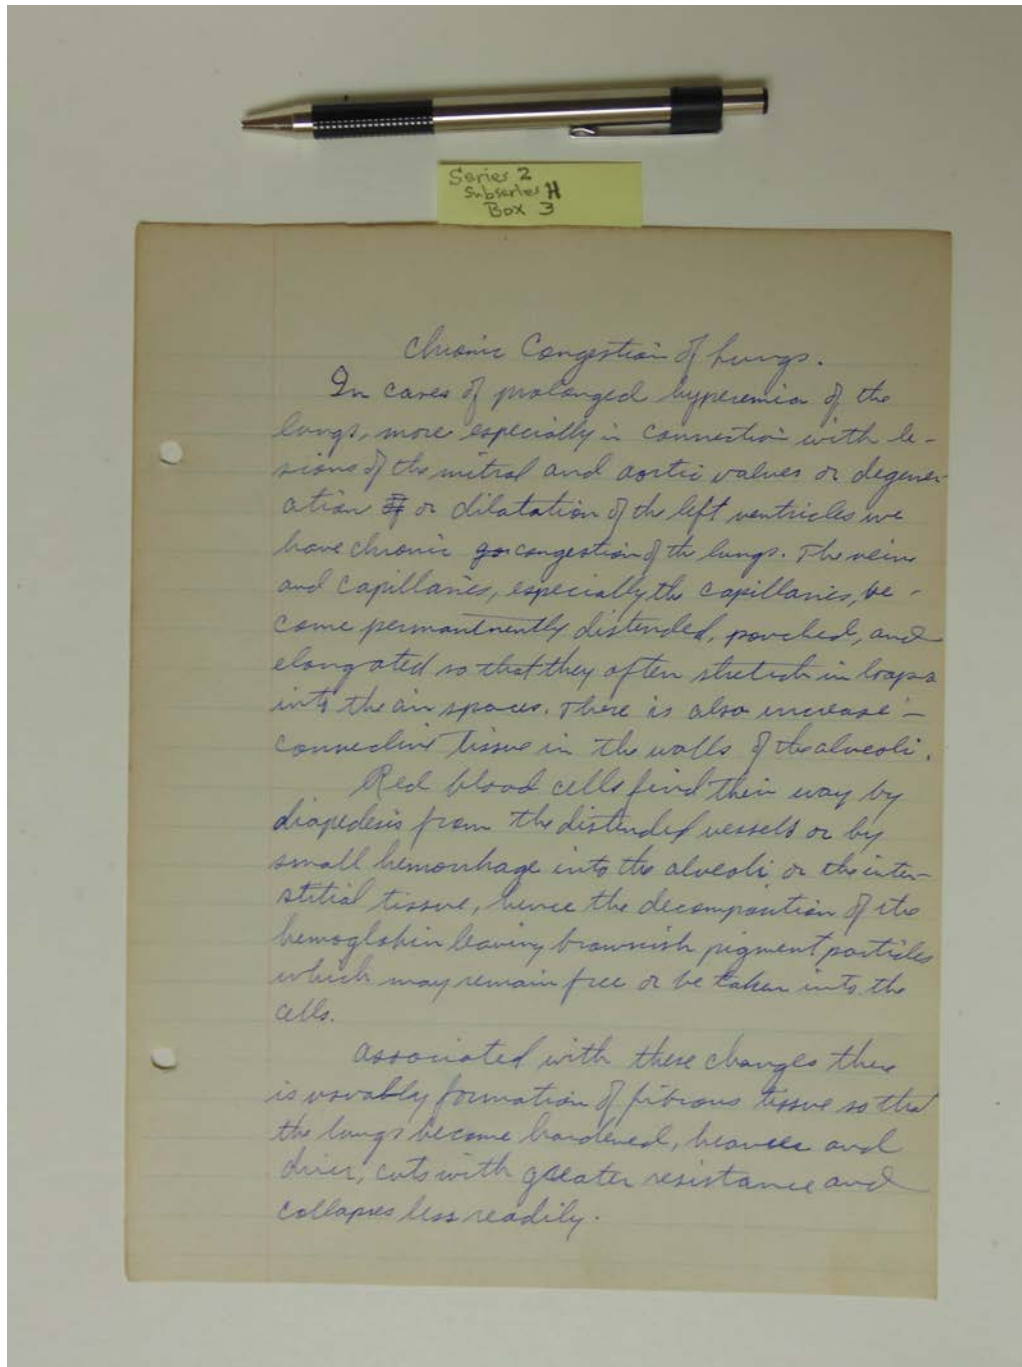 Series 2
Subseries H
Box 3
Chronic Congestion of Lungs.
In cases of prolonged hyperemia of the
lungs, more especially in connection with le-
sions of the mitral and aortic valves or degener-
ation or dilatation of the left ventricles we
have chronic congestion of the lungs. The veins
and capillaries, especially the capillaries, be-
come permantnently distended, pouched, and
elongated so that they often stretch in loops
into the air spaces. There is also increase -
connective tissue in the walls of the alveoli.
Red blood cells find their way by
diapedesis from the distended vessels or by
small hemorrhage into the alveoli or the inter-
stitial tissue, hence the decomposition of the
hemoglobin leaving brownish pigment particles
which may remain free or be taken into the
cells.
Associated with these changes there
is usually formation of fibrous tissue so that
the lungs become hardened, heavier and
drier, cuts with greater resistance and
collapses less readily.